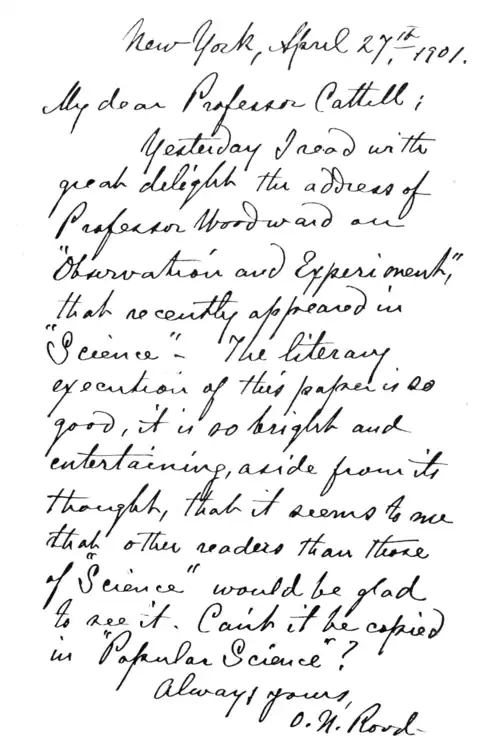 New York, April 27th, 1901.
My dear Professor Cattell;
Yesterday I read with
great delight the address of
Professor Woodward on
"Observation and Experiment,"
that recently appeared in
"Science" – The literary
execution of this paper is so
good, it is so bright and
entertaining, aside from its
thought, that it seems to me
that other readers than those
of "Science" would be glad
to see it. Can't it be copied
in "Popular Science"?
Always yours,
O. N. Rood